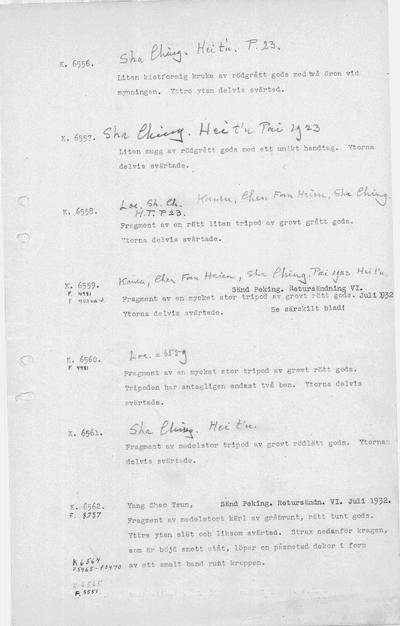 K. 6556. Sha Ching. Hei t'u. P. 23.
Liten klotformig kruka av rödgrått gods med två öron vid
mynningen. Yttre ytan delvis svärtad.
K. 6557. Sha Ching. Hei t'u Pai 1923
Liten mugg av rödgrått gods med ett unikt handtag. Ytorna
delvis svärtade.
Kansu, Chen Fan Hsien, Sha Ching.
K. 6558. Loc. Sh. Ch.
H.T. P 23.
Fragment av en rätt liten tripod av grovt grått gods.
Ytorna delvis svärtade.
Kansu, Chen Fan Hsien, Sha Ching. Pai 1923 Hei t'u.
K. 6559. Sänd Peking. Retursändning VI.
F. 4491
Fragment av en mycket stor tripod av grovt rött gods. Juli 1932
Ytorna delvis svärtade. Se särskilt blad!
K. 6560. Loc. = 6559
F. 4491
Fragment av en mycket stor tripod av grovt rött gods.
Tripoden har antagligen endast två ben. Ytorna delvis
svärtade.
K. 6561. Sha Ching. Hei t'u.
Fragment av medelstor tripod av grovt rödlätt gods. Ytorna
delvis svärtade.
K. 6562. Yang Shao Tsun, Sänd Peking. Retursändn. VI. Juli 1932.
F. 8757
Fragment av medelstort kärl av gråbrunt, rätt tunt gods.
Yttre ytan slät och liksom svärtad. Strax nedanför kragen,
som är böjd snett utåt, löper en påsnodd dekor i form
av ett smalt band runt kroppen.
K 6564
F 5465 - F5470
K 6565
F. 5551.